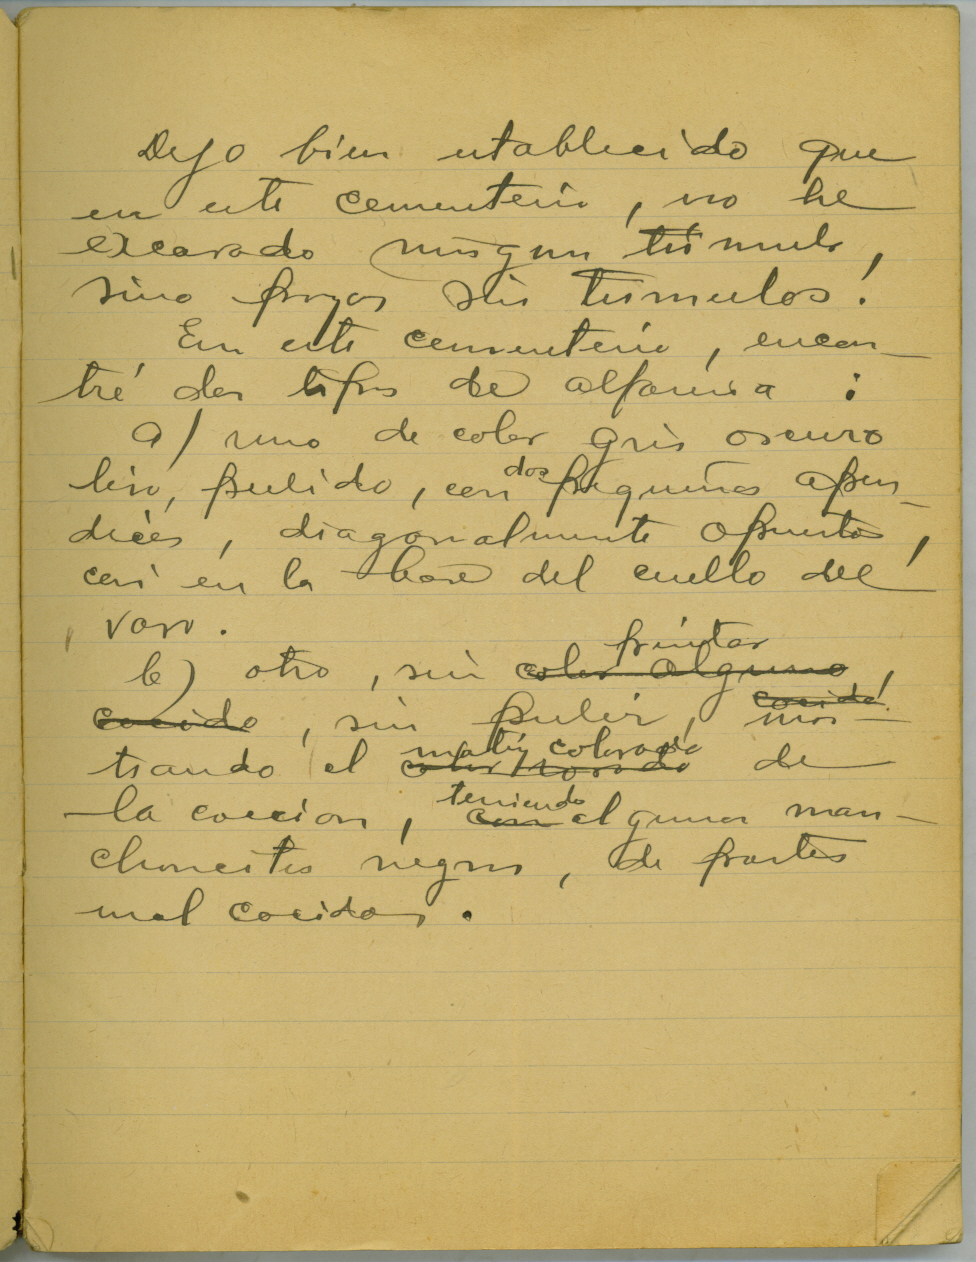 Dejo bien establecido que
en este cementerio, no he
excavado ningun túmulo,
sino fosas sin tumulos.
En este cementerio, encon-
tré dos tipos de alfareria :
a) uno de color gris oscuro
liso, pulido, con dos pequeños apen-
dices, diagonalmente opuestos,
casi en la base del cuello del
vaso.
pintar
b) otro, sin color alguno
cocido
cocido, sin pulir, mos-
matiz colorado
trando el color rosado de
teniendo
la coccion, con algunas man-
choncitos negros, de partes
mal cocidas.